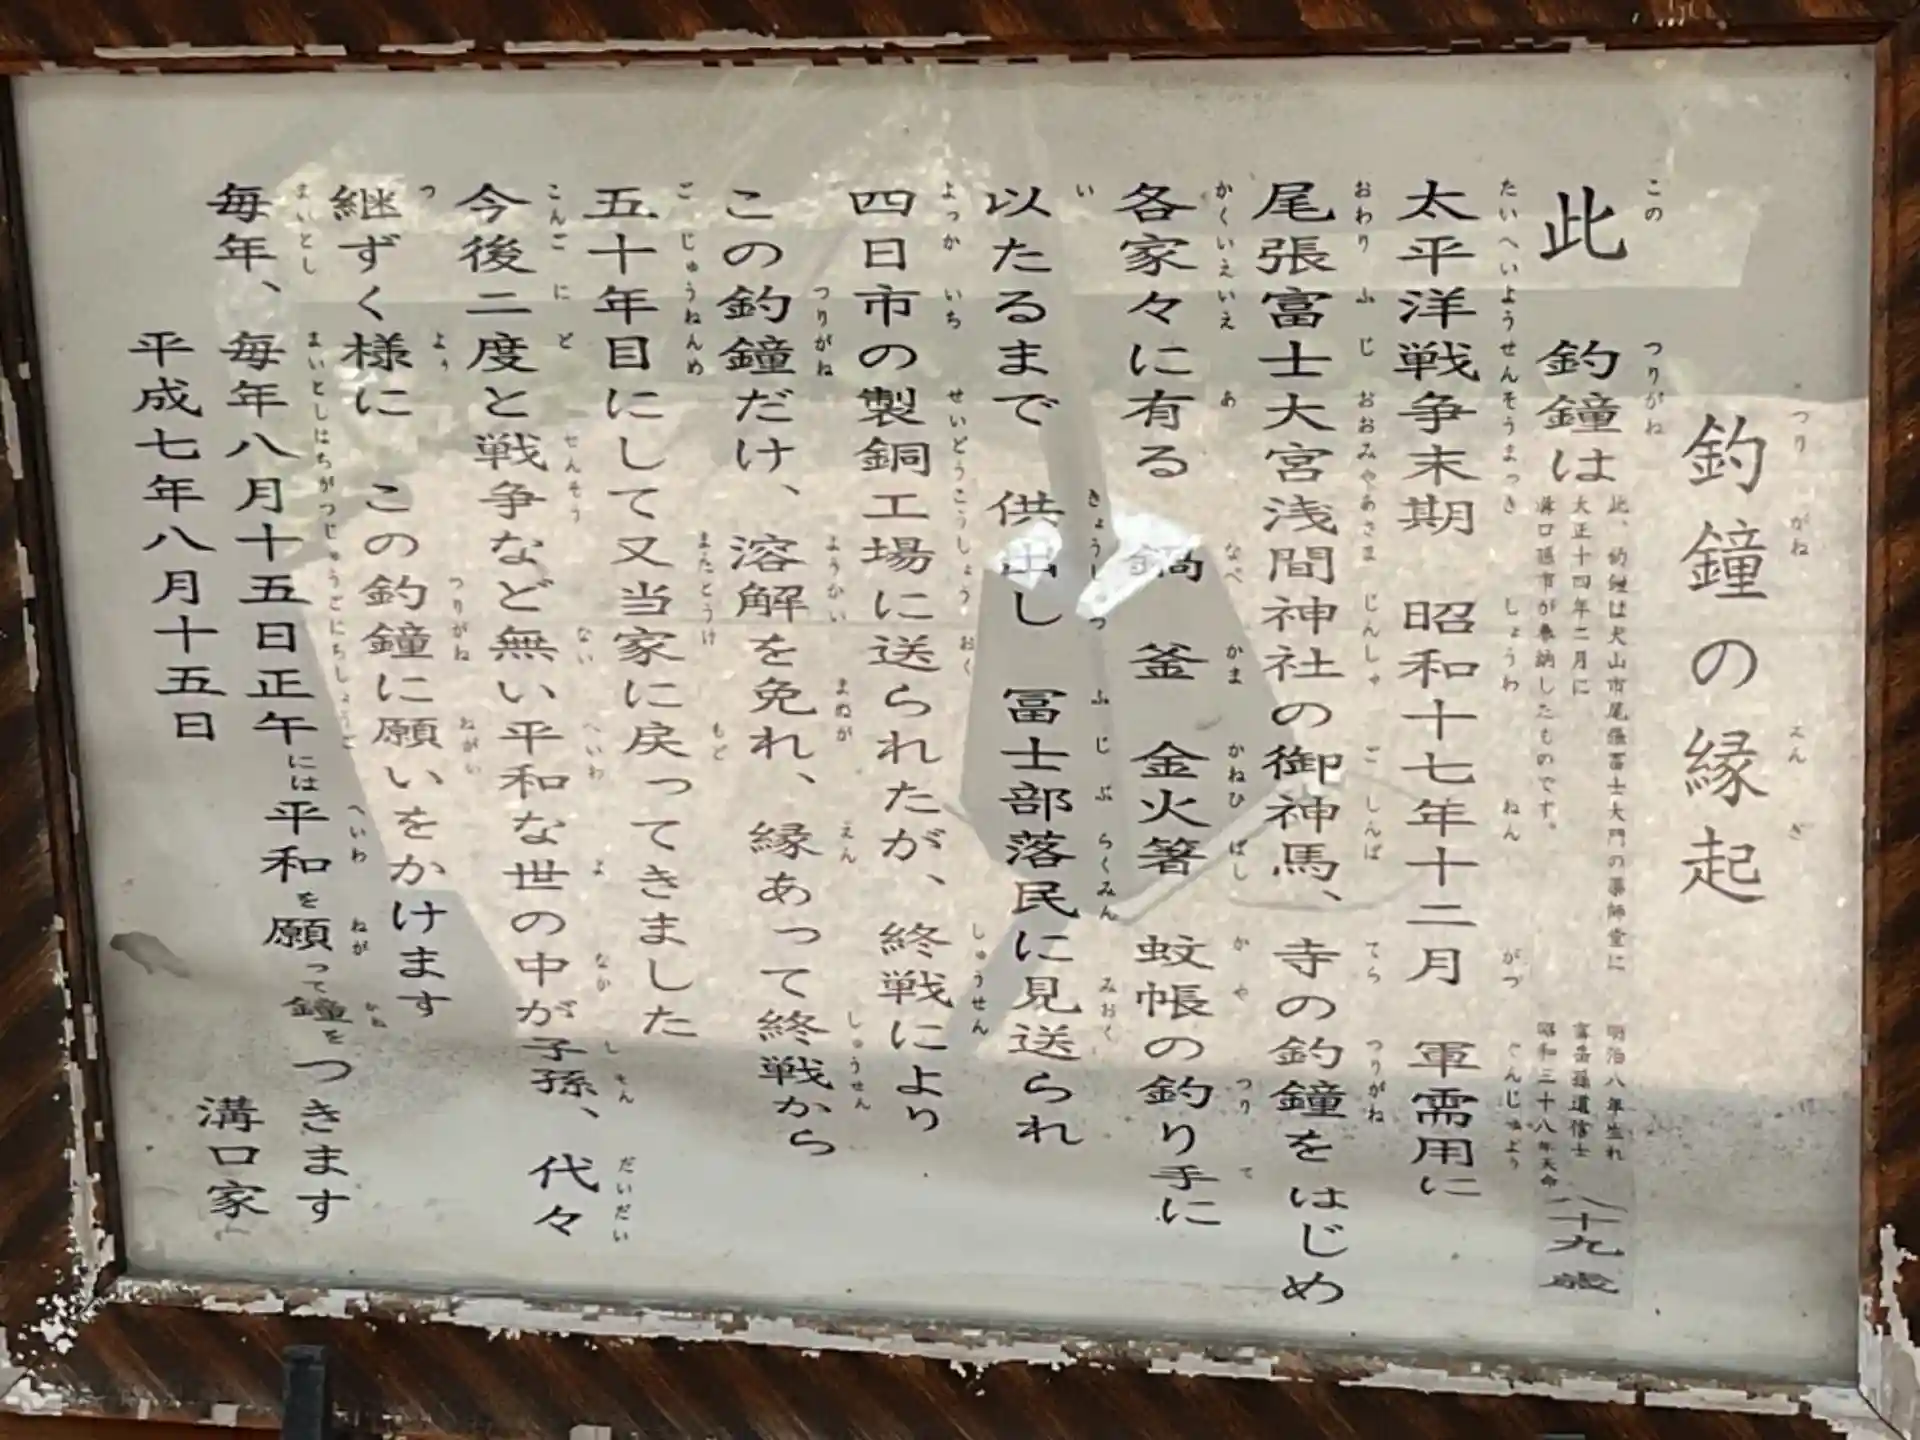 釣鐘の縁起
此　釣鐘は
此、釣鐘は犬山市尾張富士大門の薬師堂に
大正十四年二月に
溝口孫市が奉納したものです。
明治八年生れ
富岳孫道信士
昭和三十八年天命
八十九歳
太平洋戦争末期　昭和十七年十二月　軍需用に
尾張富士大宮浅間神社の御神馬、寺の釣鐘をはじめ
各家々に有る　鍋　釜　金火箸　蚊帳の釣り手に
以たるまで　供出し　冨士部落民に見送られ
四日市の製銅工場に送られたが、終戦により
この釣鐘だけ、溶解を免れ、縁あって終戦から
五十年目にして又当家に戻ってきました
今後二度と戦争など無い平和な世の中が子孫、代々
継ずく様に　この釣鐘に願いをかけます
毎年、毎年八月十五日正午には平和を願って鐘をつきます
平成七年八月十五日
溝口家